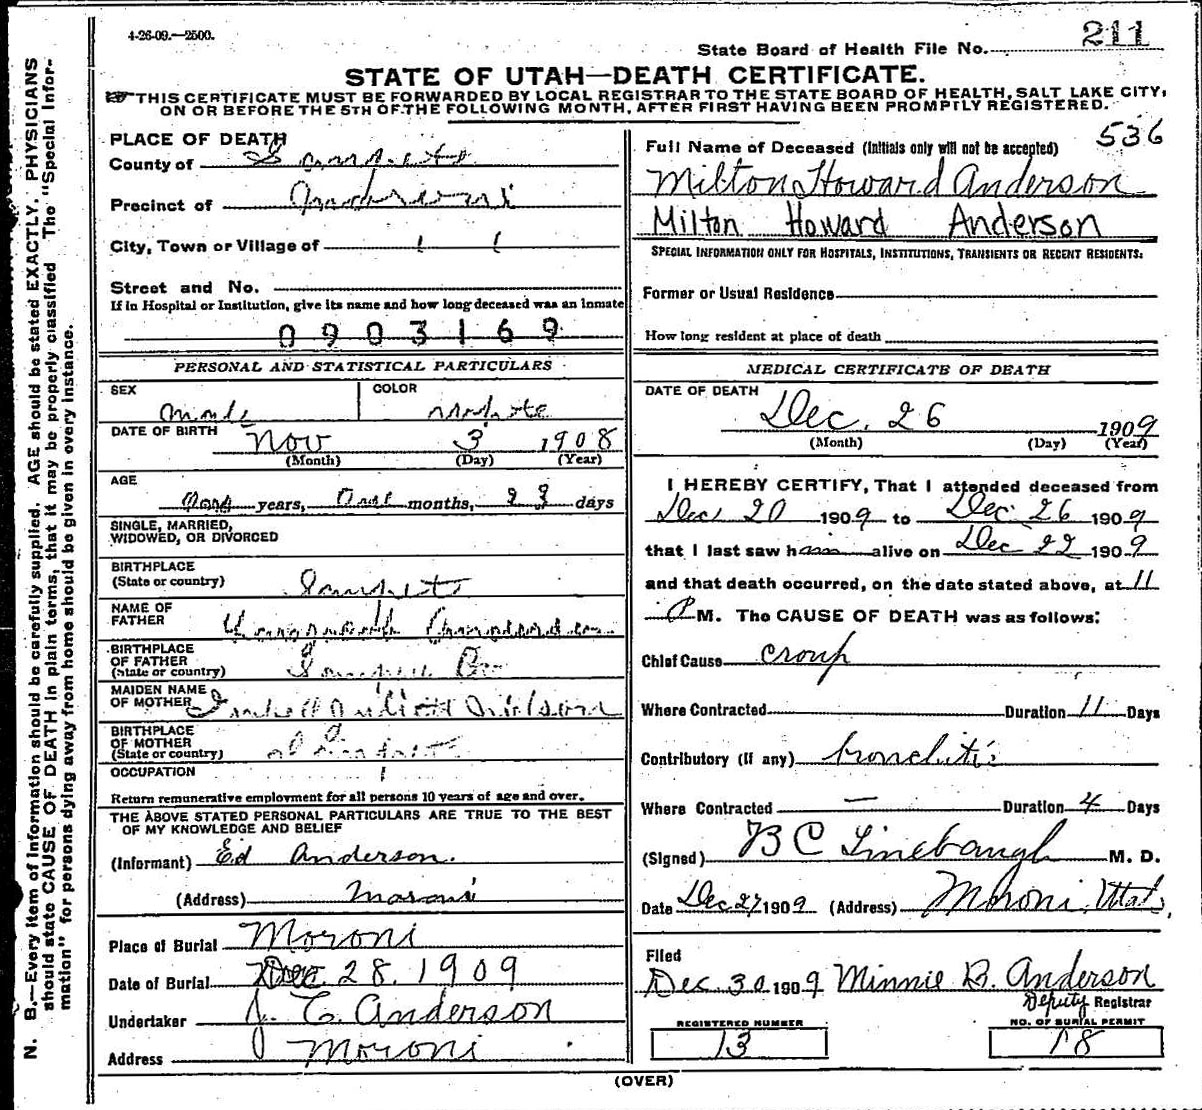 4-26-09.—2500.
State Board of Health File No. 211
STATE OF UTAH—DEATH CERTIFICATE.
THIS CERTIFICATE MUST BE FORWARDED BY LOCAL REGISTRAR TO THE STATE BOARD OF HEALTH, SALT LAKE CITY,
ON OR BEFORE THE 5TH OF THE FOLLOWING MONTH, AFTER FIRST HAVING BEEN PROMPTLY REGISTERED.
N. B.—Every item of information should be carefully supplied. AGE should be stated EXACTLY. PHYSICIANS
should state CAUSE OF DEATH in plain terms, that it may be properly classified The "Special Infor-
mation" for persons dying away from home should be given in every instance.
PLACE OF DEATH
County of
Precinct of
City, Town or Village of
Street and No.
If in Hospital or Institution, give its name and how long deceased was an inmate
0903169
PERSONAL AND STATISTICAL PARTICULARS
SEX COLOR
Male White
DATE OF BIRTH Nov 3 1908
(Month) (Day) (Year)
AGE
One years, One months, 23 days
SINGLE, MARRIED,
WIDOWED, OR DIVORCED
BIRTHPLACE
(State or country)
NAME OF
FATHER
BIRTHPLACE
OF FATHER
(State or country)
MAIDEN NAME
OF MOTHER
BIRTHPLACE
OF MOTHER
(State or country)
OCCUPATION
Return remunerative employment for all persons 10 years of age and over.
THE ABOVE STATED PERSONAL PARTICULARS ARE TRUE TO THE BEST
OF MY KNOWLEDGE AND BELIEF
(Informant) Ed Anderson.
(Address) Moroni
Place of Burial Moroni
Date of Burial Dec. 28. 1909
Undertaker J. C. Anderson
Address Moroni
536
Full Name of Deceased (Initials only will not be accepted)
Milton Howard Anderson
Milton Howard Anderson
SPECIAL INFORMATION ONLY FOR HOSPITALS, INSTITUTIONS, TRANSIENTS OR RECENT RESIDENTS:
Former or Usual Residence
How long resident at place of death
MEDICAL CERTIFICATE OF DEATH
DATE OF DEATH
Dec. 26 1909
(Month) (Day) (Year)
I HEREBY CERTIFY, That I attended deceased from
Dec 20 1909 to Dec 26 1909
that I last saw him alive on Dec 22 1909
and that death occurred, on the date stated above, at 11
P M. The CAUSE OF DEATH was as follows:
Chief Cause croup
Where Contracted Duration 11 Days
Contributory (if any) bronchitis
Where Contracted — Duration 4 Days
(Signed) B C Linebaugh M. D.
Date Dec 27 1909 (Address) Moroni, Utah,
Filed
Dec. 30 1909 Minnie B. Anderson
Deputy Registrar
REGISTERED NUMBER NO. OF BURIAL PERMIT
13 18
(OVER)